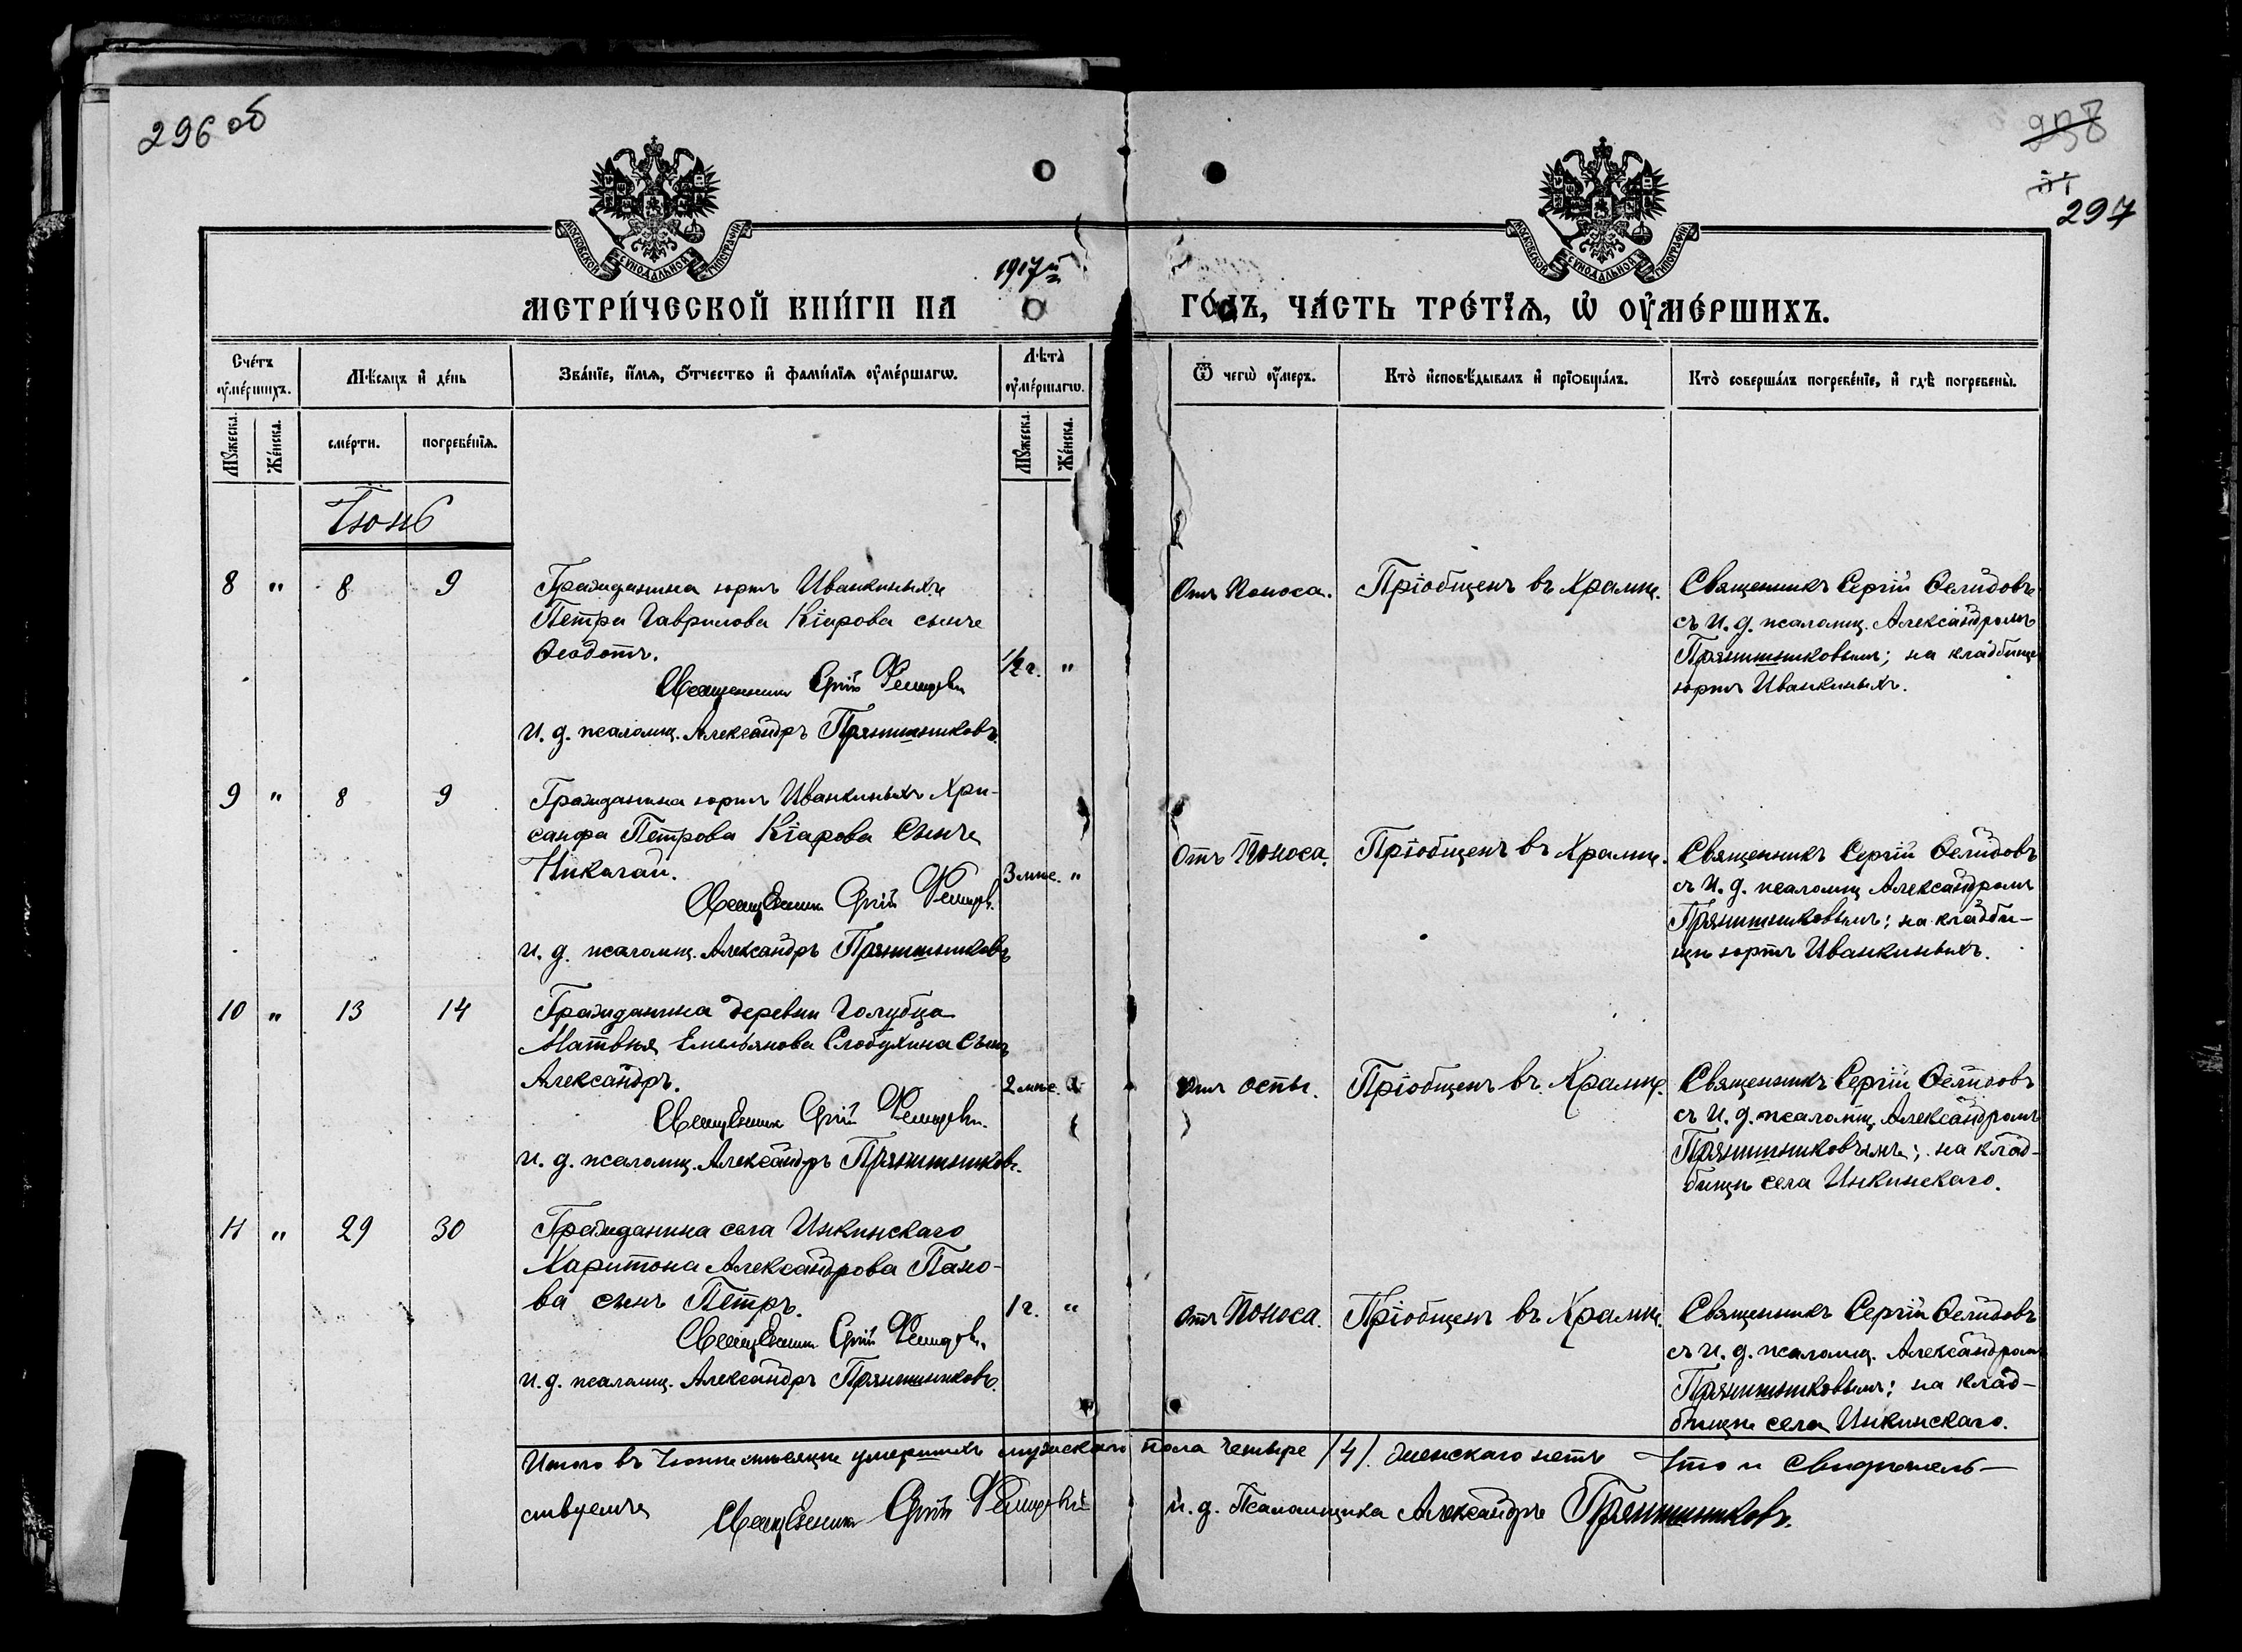 296 об
238
297
МОСКОВСКОЙ СѴНОДАЛЬНОЙ ТИПОГРАФІИ
МОСКОВСКОЙ СѴНОДАЛЬНОЙ ТИПОГРАФІИ
1917й
МЕТРИ́ЧЕСКОЙ КНИ́ГИ НА ГО́ДЪ, ЧА́СТЬ ТРЕ́ТЇѦ, Ѡ҆ ОУ҆МЕ́РШИХЪ.
Сче́тъ оу҆ме́ршихъ.
Мѣ́сѧцъ и҆ де́нь
Зва́нїе, и҆́мѧ, ѻ҆́тчество и҆ фами́лїѧ оу҆ме́ршагѡ.
Лѣ́та оу҆ме́ршагѡ.
Ѿ чегѡ̀ оу҆́меръ.
Кто̀ и҆сповѣ́дывалъ и҆ прїѡбща́лъ.
Кто̀ соверша́лъ погребе́нїе, и҆ гдѣ̀ погребены̀.
Мꙋ́жеска.
Же́нска.
сме́рти.
погребе́нїѧ.
Мꙋ́жеска.
Же́нска.
Іюнь
8 " 8 9
Гражданина юртъ Иванкиныхъ
Петра Гаврилова Кіарова сынъ
Ѳеодотъ.
1/2 г. "
Священникъ Сергій Ѳелидовъ
и. д. псаломщ. Александръ Прянишниковъ.
Отъ Поноса.
Пріобщенъ въ Храмѣ.
Священникъ Сергій Ѳелидовъ
съ и. д. псаломщ. Александромъ
Прянишниковымъ; на кладбищѣ
юртъ Иванкиныхъ.
9 " 8 9
Гражданина юртъ Иванкиныхъ Хри-
санфа Петрова Кіарова сынъ
Николай.
3 мѣс. "
Священникъ Сергій Ѳелидовъ
и. д. псаломщ. Александръ Прянишниковъ
Отъ Поноса.
Пріобщенъ въ Храмѣ.
Священникъ Сергій Ѳелидовъ
съ и. д. псаломщ Александромъ
Прянишниковымъ; на кладби-
щѣ юртъ Иванкиныхъ.
10 " 13 14
Гражданина деревни Голубца
Матвѣя Емельянова Слобухина сынъ
Александръ.
2 мѣс.
Священникъ Сергій Ѳелидовъ.
и. д. псаломщ. Александръ Прянишниковъ.
Отъ оспы.
Пріобщенъ въ Храмѣ.
Священникъ Сергій Ѳелидовъ
съ и. д. псаломщ. Александромъ
Прянишниковымъ; на клад-
бищѣ села Инкинскаго.
11 " 29 30
Гражданина села Инкинскаго
Харитона Александрова Пано-
ва сынъ Петръ.
1 г. "
Священникъ Сергій Ѳелидовъ.
и. д. псаломщ. Александръ Прянишниковъ.
Отъ Поноса.
Пріобщенъ въ Храмѣ.
Священникъ Сергій Ѳелидовъ
съ и. д. псаломщ. Александромъ
Прянишниковымъ; на клад-
бищѣ села Инкинскаго.
Итого въ Іюнѣ мѣсяцѣ умершихъ мужскаго пола четыре /4/. женскаго нетъ Что и свидѣтель-
ствуемъ Священникъ Сергій Ѳелидовъ и. д. Псаломщика Александръ Прянишниковъ.